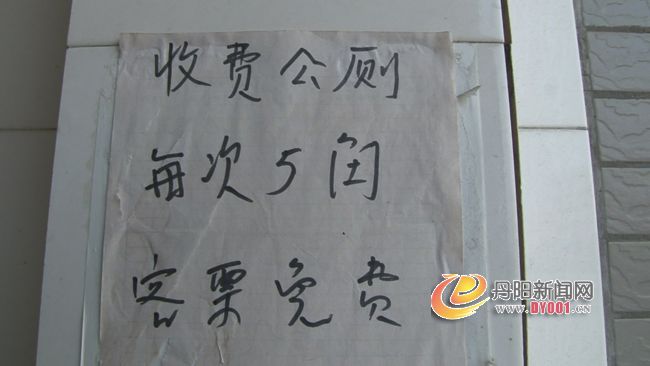 收费公厕
每次5角
客票免费
丹阳新闻网
www.DY001.cn